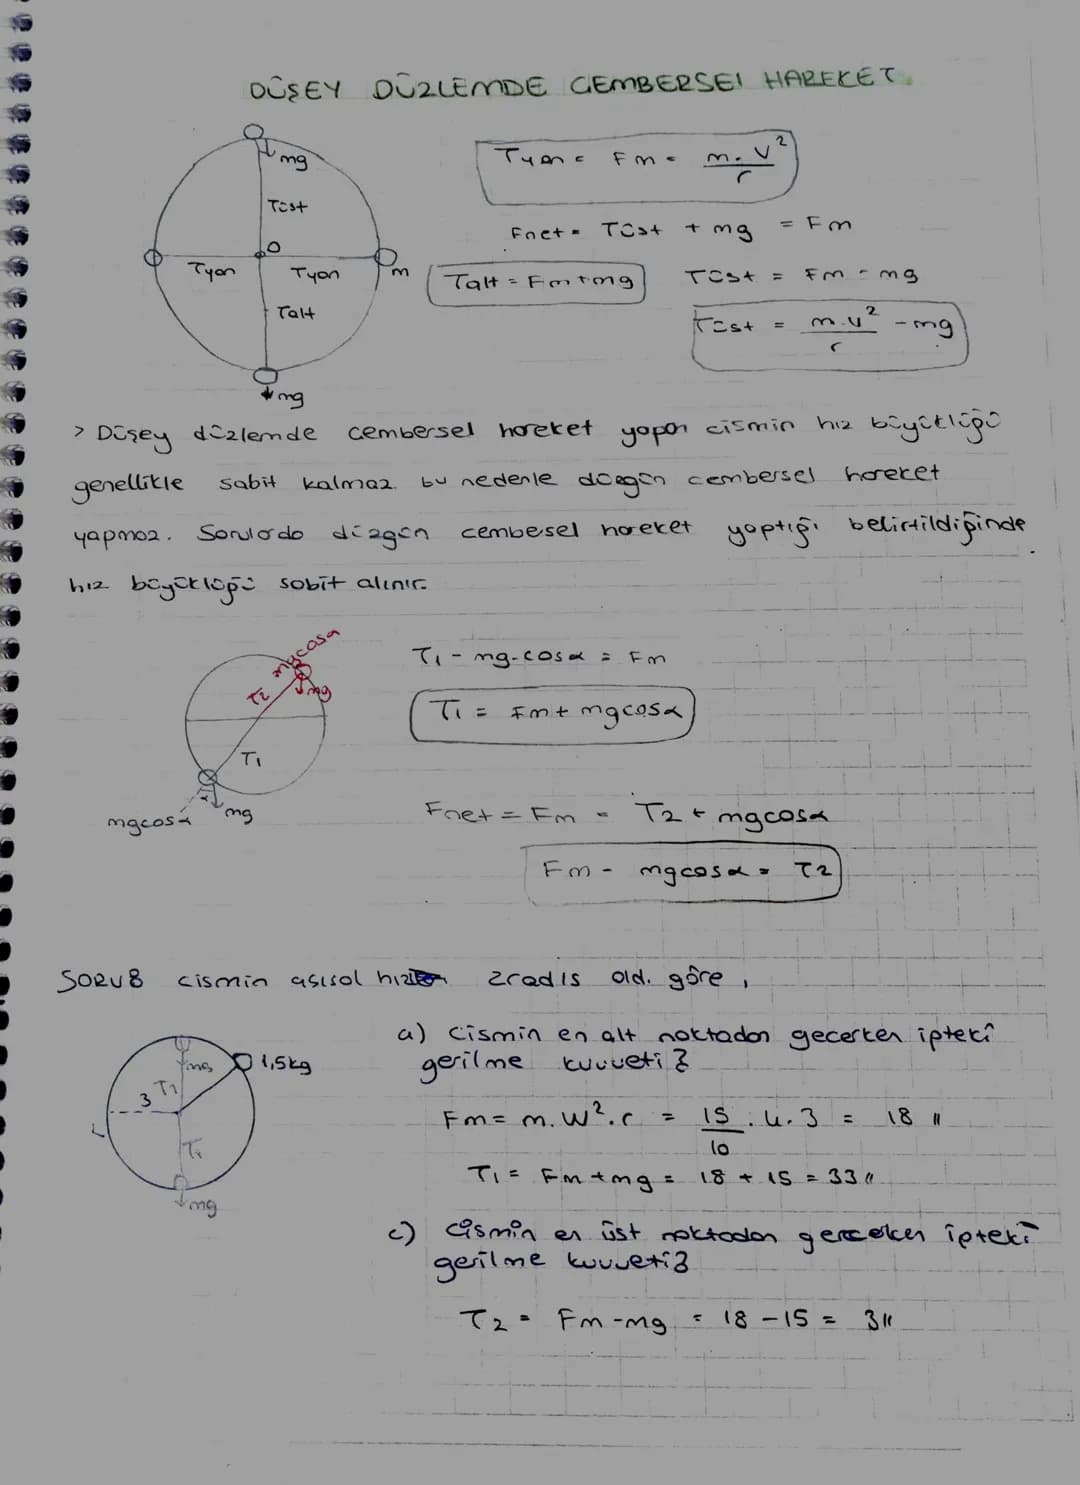 DÜŞEY DÜZLEMDE CEMBERSEl HAREKET
mg
Tüst
O
Tyan
Tyan
m
Talt
mg
Tyan = Fm = m.V²/r
Fnet = Tüst + mg = Fm
Talt = Fm+mg
Tüst = Fm - mg
Tüst = m.v²/r - mg
> Düşey düzlemde cembersel hareket yapan cismin hız büyüklüğü
genellikle sabit kalmaz. bu nedenle düzgün cembersel hareket
yapmaz. Sorularda düzgün cembesel hareket yaptığı belirtildiğinde
hız büyüklüğü sabit alınır.
mgcosα
T2
mg
T1
mgcosα
mg
T1 - mg.cosα = Fm
T1 = Fm+ mgcosα
Fnet = Fm = T2 + mgcosα
Fm - mgcosα = T2
SORU8 cismin açısal hızı 2rad/s old. göre,
mg
1,5kg
3
T2
T1
mg
a) Cismin en alt noktadan gecerken ipteki
gerilme kuvveti?
Fm = m.W².r = 15/10 . 4.3 = 18 //
T1 = Fm+mg = 18 + 15 = 33 //
c) Cismin en üst noktadan gerceken ipteki
gerilme kuvveti?
T2 = Fm-mg = 18 - 15 = 3 //